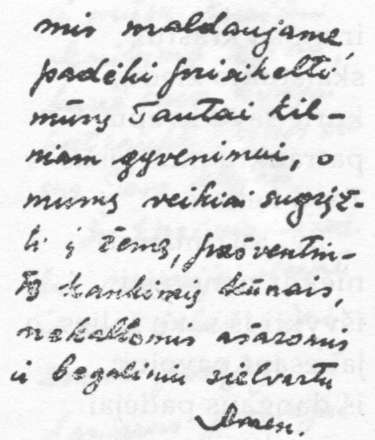 mis maldaujame,
padėki prisikelti
mūsų Tautai kil-
niam gyvenimui, o
mums veikiai sugrįž-
ti į žemę, pašventin-
tą kankinių kūnais,
nekaltomis ašaromis
ir begaliniu sielvartu
Amen.